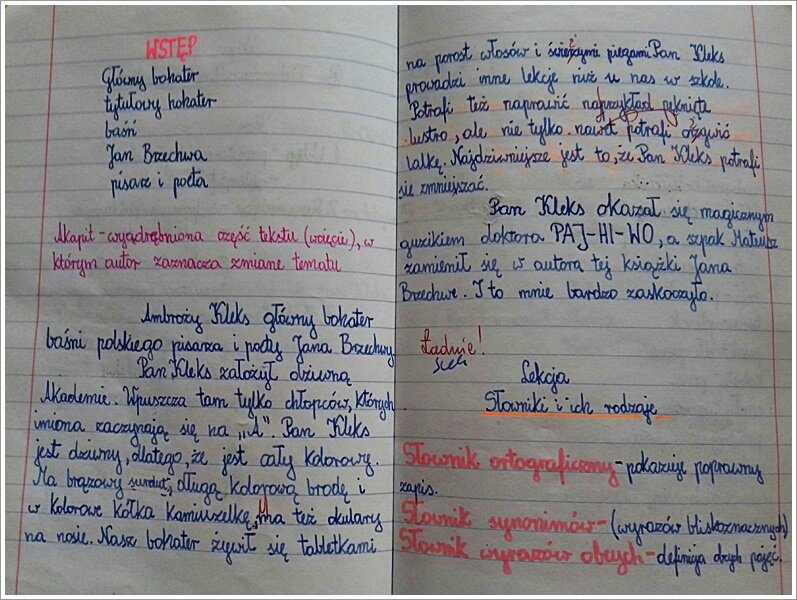 WSTĘP
Główny bohater
tytułowy bohater
baśń
Jan Brzechwa
pisarz i poeta
Akapit - wyodrębniona część tekstu (wcięcie), w
którym autor zaznacza zmiane tematu
Ambroży Kleks główny bohater
baśni polskiego pisarza i poety Jana Brzechwy
Pan Kleks założył dziwną
Akademie. Wpuszcza tam tylko chłopców, których
imiona zaczynają się na „A". Pan Kleks
jest dziwny, dlatego, że jest cały kolorowy.
Ma brązowy surdut, długą kolorową brodę i
w kolorowe kółka kamizelkę, ma też okulary
na nosie. Nasz bohater żywił się tabletkami
na porost włosów i świeżymi piegami Pan Kleks
prowadzi inne lekcje niż u nas w szkole.
Potrafi też naprawić naprzykład pęknięte
lustro, ale nie tylko. nawet potrafi ożywić
lalkę. Najdziwniejsze jest to, że Pan Kleks potrafi
się zmniejszać.
Pan Kleks okazał się magicznym
guzikiem doktora PAJ-HI-WO, a szpak Mateusz
zamienił się w autora tej książki Jana
Brzechwe. I to mnie bardzo zaskoczyło.
Ładnie!
Lekcja
Słowniki i ich rodzaje
Słownik ortograficzny - pokazuje poprawny
zapis.
Słownik synonimów - (wyrazów bliskoznacznych)
Słownik wyrazów obcych - definicja obcych pojęć.